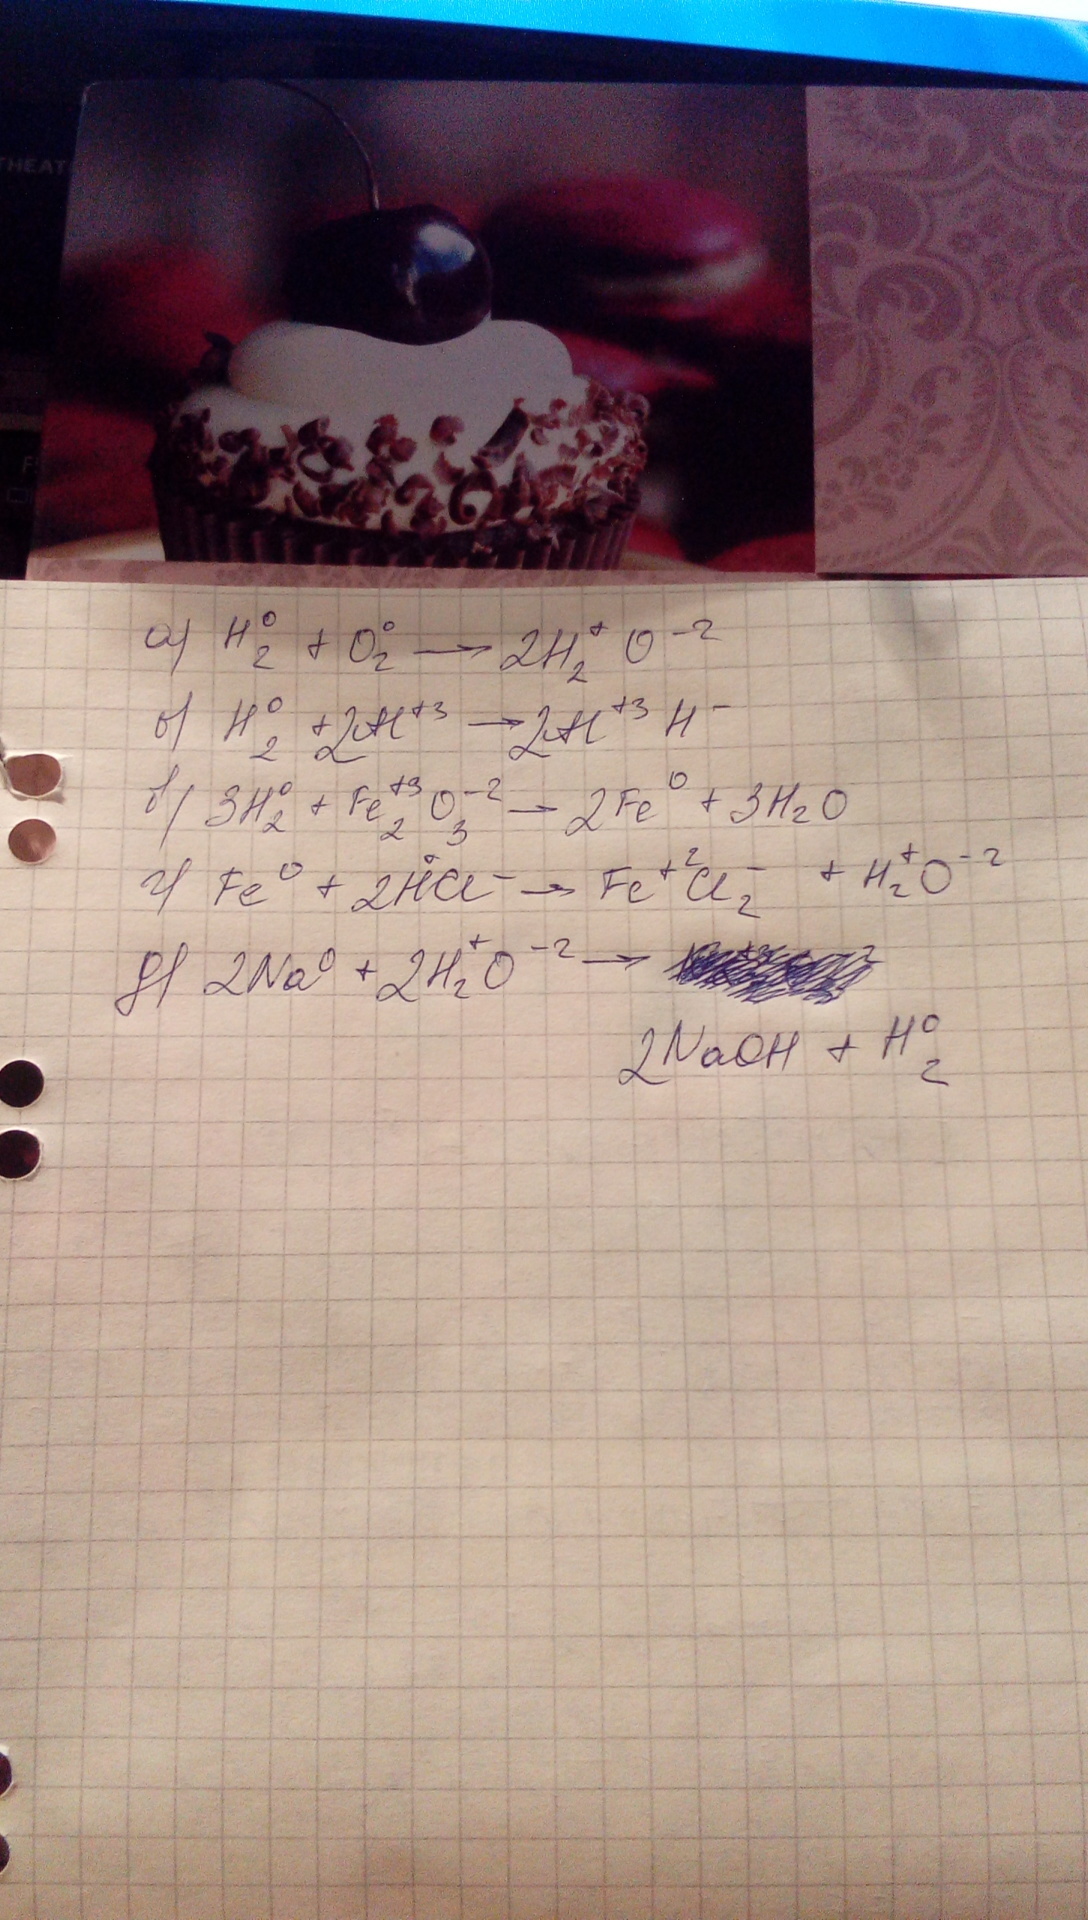 THEAT
а) H₂⁰ + O₂⁰ → 2H₂⁺O⁻²
б) H₂⁰ + 2Al⁺³ → 2Al⁺³H⁻
в) 3H₂⁰ + Fe₂⁺³O₃⁻² → 2Fe⁰ + 3H₂O
г) Fe⁰ + 2H⁺Cl⁻ → Fe⁺²Cl₂⁻ + H₂⁺O⁻²
д) 2Na⁰ + 2H₂⁺O⁻² →
2NaOH + H₂⁰